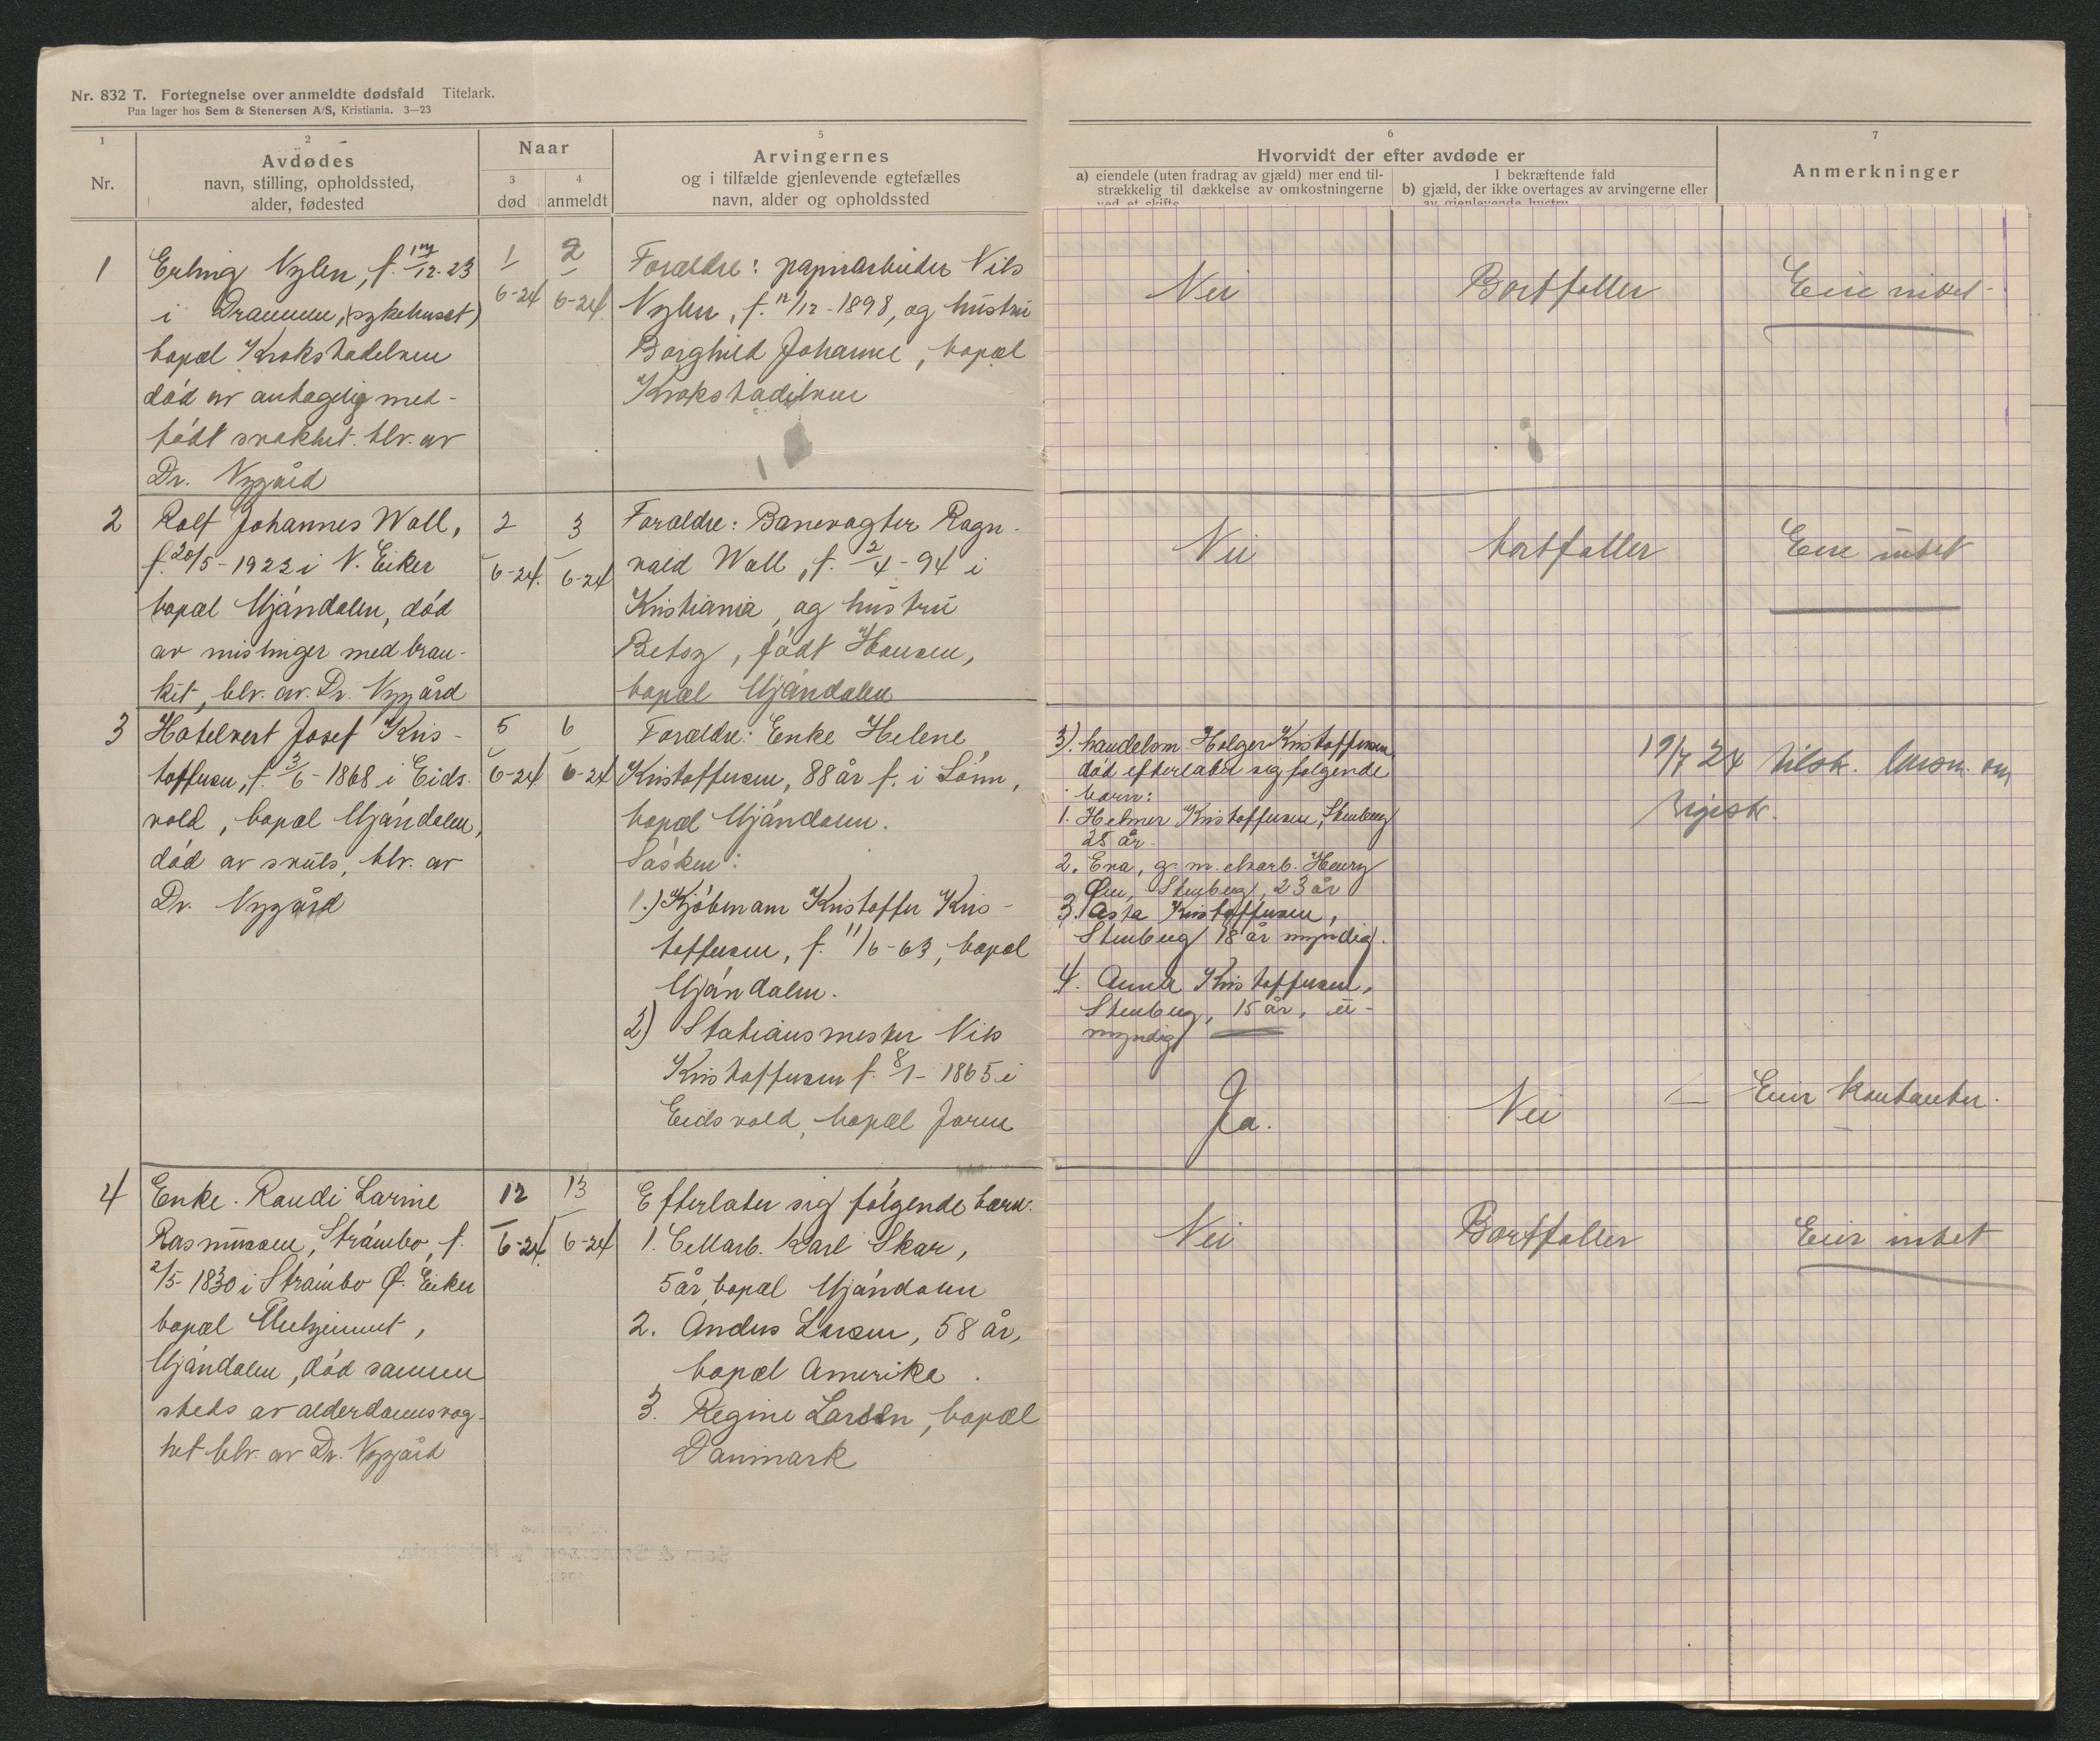 Nr. 832 T. Fortegnelse over anmeldte dødsfald Titelark.
Paa lager hos Sem & Stenersen A/S, Kristiania. 3—23
1
Nr.
2
Avdødes
navn, stilling, opholdssted,
alder, fødested
Naar
3
død
4
anmeldt
5
Arvingernes
og i tilfælde gjenlevende egtefælles
navn, alder og opholdssted
6
Hvorvidt der efter avdøde er
a) eiendele (uten fradrag av gjæld) mer end til-
strækkelig til dækkelse av omkostningerne
ved et skifte
I bekræftende fald
b) gjæld, der ikke overtages av arvingerne eller
av gjenlevende hustru
7
Anmerkninger
1
Erling Nylen, f. 12-23
i Drammen, (sykehuset)
bopæl Krokstadelven
död av antagelig med-
födt svakhet. blv. av
Dr. Nygård
1
6-24
2
6-24
Forældre: papirarbeider Nils
Nylen, f. 12/12-1898, og hustru
Borghild Johanne, bopæl
Krokstadelven
Nei
Bortfaller
Eiere intet
2
Rolf Johannes Wall,
f. 20/5-1922 i N. Eiker
bopæl Mjöndalen, död
av meslinger med bron-
kit, blv. av. Dr. Nygård
2
6-24.
3
6-24
Forældre: Banevagter Ragn-
vald Wall, f. 2/4-94 i
Kristiania, og hustru
Betsy, födt Hansen,
bopæl Mjöndalen
Nei
bortfaller
Eiere intet
3
Hotelvert Josef Kris-
toffersen, f. 3/6-1868 i Eids-
vold, bopæl Mjöndalen,
död av av
Dr. Nygård
5
6-24
6
6-24
Forældre: Enke Helene
Kristoffersen, 88 år f. i
bopæl Mjöndalen.
Sösken:
1.) Kjöbmann Kristoffer Kris-
toffersen, f. 11/6-63, bopæl
Mjöndalen.
2) Stationsmester Nils
Kristoffersen f. 8/1-1865 i
Eidsvold, bopæl Jaren
3). handelsm. Holger Kristoffersen
död efterlater sig følgende
barn:
1. Helmer Kristoffersen, Stenberg
25 år.
2. Eva, g. m. Henry
Øen, Stenberg, 23 år
3. Asta Kristoffersen,
Stenberg 18 år myndig.
4. Anna Kristoffersen,
Stenberg, 15 år, u-
myndig
Ja.
Nei
19/7 24 tilsk. lensm. om
Eier kontanter.
4
Enke. Randi Larine
Rasmussen, Strömbo, f.
2/5-1830 i Strömbo Ø. Eiker
bopæl
Mjöndalen, död sammen
steds av alderdomssvag-
het blv. av Dr. Nygård
12
6-24.
13
6-24
Efterlater sig følgende barn:
1. Cellarb. Karl Skar,
5 år, bopæl Mjöndalen
2. Anders Larsen, 58 år,
bopæl Amerika.
3. Regine Larsen, bopæl
Danmark
Nei
Bortfaller
Eier intet